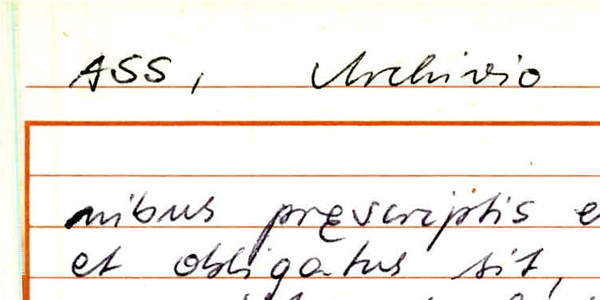 ASS, Archivio
nibus pręscriptis e
et obligatus sit,